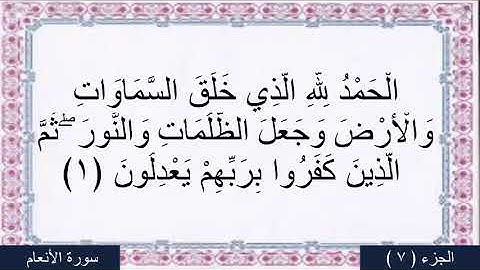 الْحَمْدُ لِلَّهِ الَّذِي خَلَقَ السَّمَاوَاتِ
وَالْأَرْضَ وَجَعَلَ الظُّلُمَاتِ وَالنُّورَ ۖ ثُمَّ
الَّذِينَ كَفَرُوا بِرَبِّهِمْ يَعْدِلُونَ (١)
الجزء (٧)
سورة الأنعام